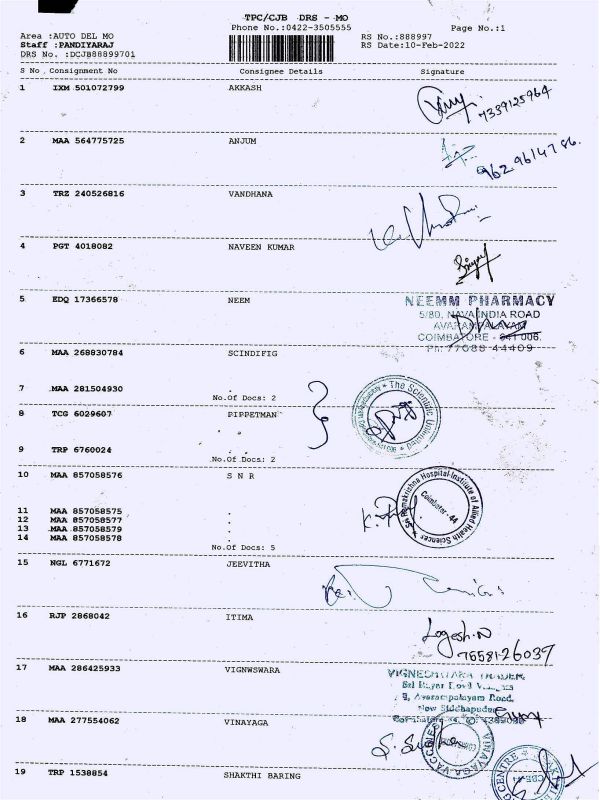 TPC/CJB DRS - MO
Phone No.:0422-3505555
Page No.:1
Area :AUTO DEL MO
RS No.:888997
Staff :PANDIYARAJ
RS Date:10-Feb-2022
DRS No. :DCJB88899701
S No Consignment No Consignee Details Signature
1 IXM 501072799 AKKASH
7339125964
2 MAA 564775725 ANJUM
962 9614786.
3 TRZ 240526816 VANDHANA
4 PGT 4018082 NAVEEN KUMAR
5 EDQ 17366578 NEEM
NEEMM PHARMACY
5/80, NAVA INDIA ROAD
AVARAMPALAYAM
COIMBATORE - 641 006.
Ph: 77088 44409
6 MAA 268830784 SCINDIFIG
7 MAA 281504930 .
No.Of Docs: 2
The Scientific
8 TCG 6029607 PIPPETMAN
9 TRP 6760024 .
No.Of Docs: 2
10 MAA 857058576 S N R
Sri Ramakrishna Hospital-Institute of Allied Health Sciences
Coimbatore - 44
11 MAA 857058575 .
12 MAA 857058577 .
13 MAA 857058579 .
14 MAA 857058578 .
No.Of Docs: 5
15 NGL 6771672 JEEVITHA
16 RJP 2868042 ITIMA
Logesh.N
75581-26037
17 MAA 286425933 VIGNWSWARA
9, Avarampalayam Road,
New Siddhapudur
18 MAA 277554062 VINAYAGA
VINAYAGA VACCINES
19 TRP 1538854 SHAKTHI BARING